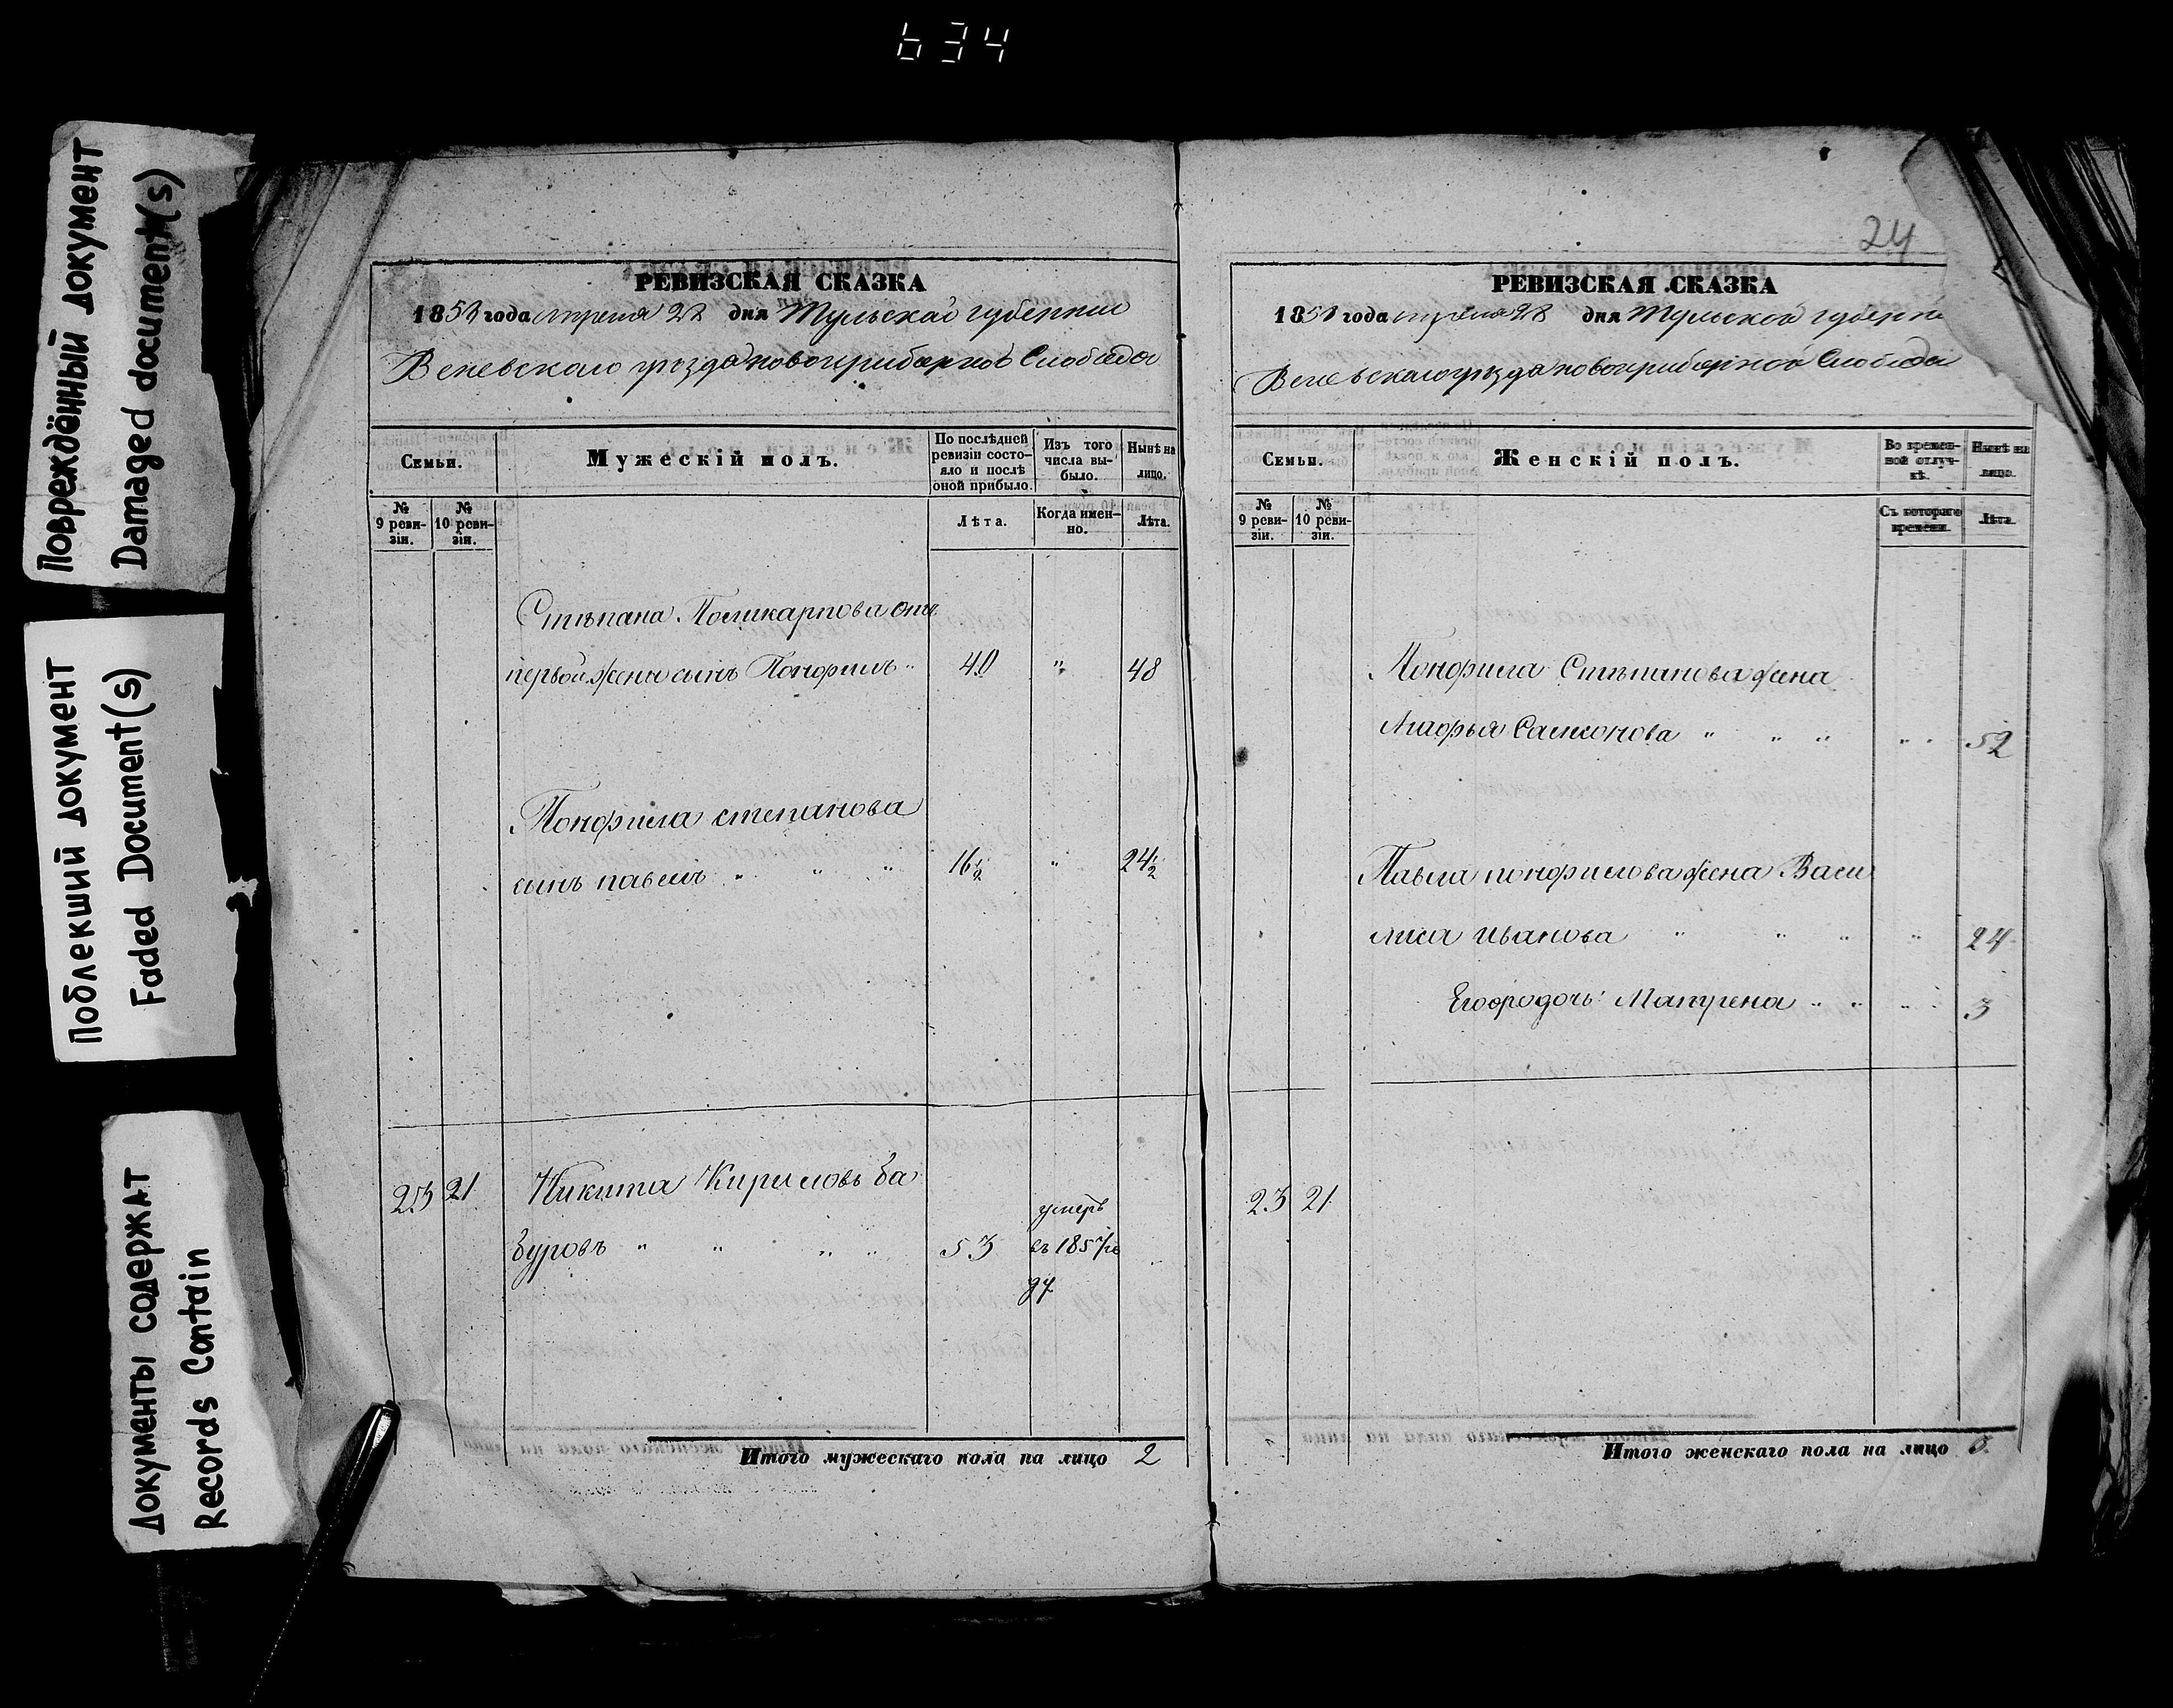 634
Повреждённый документ
Damaged document(s)
Поблекший документ
Faded Document(s)
Документы содержат
Records Contain
РЕВИЗСКАЯ СКАЗКА
1858 года апреля 28 дня Тульской губернии
Веневскаго уѣзда новоприборной Слободы
Семьи.
Мужескій полъ.
По послѣдней ревизіи состо-
яло и послѣ
оной прибыло.
Изъ того
числа вы-
было.
Нынѣ на
лицо.
№
9 реви-
зіи.
№
10 реви-
зіи.
Лѣта.
Когда имен-
но.
Лѣта.
Стѣпана Поликарпова отъ
первой жены сынъ Понфилъ " 40 " 48
Понфила степанова
сынъ павелъ " " " 16½ " 24½
23 21 Никита Кириловъ Ба
буровъ " " " " 53 умеръ
въ 1857 го
ду
Итого мужескаго пола на лицо 2
24
РЕВИЗСКАЯ СКАЗКА
1858 года апреля 28 дня Тульской губерни
Веневскаго уѣзда новоприборной Слободы
Семьи.
Женскій полъ.
Во времен-
ной отлуч-
кѣ.
Нынѣ на
лицо.
№
9 реви-
зіи.
№
10 реви-
зіи.
Съ котораго
времени.
Лѣта.
Понфила Стѣпанова жена
Агафья Самсонова " " " " " 52
Павла понфилова жена Васи
лиса Иванова " " " " 24
Его родочь: Матрена " " " " 3
23 21
Итого женскаго пола на лицо 3.